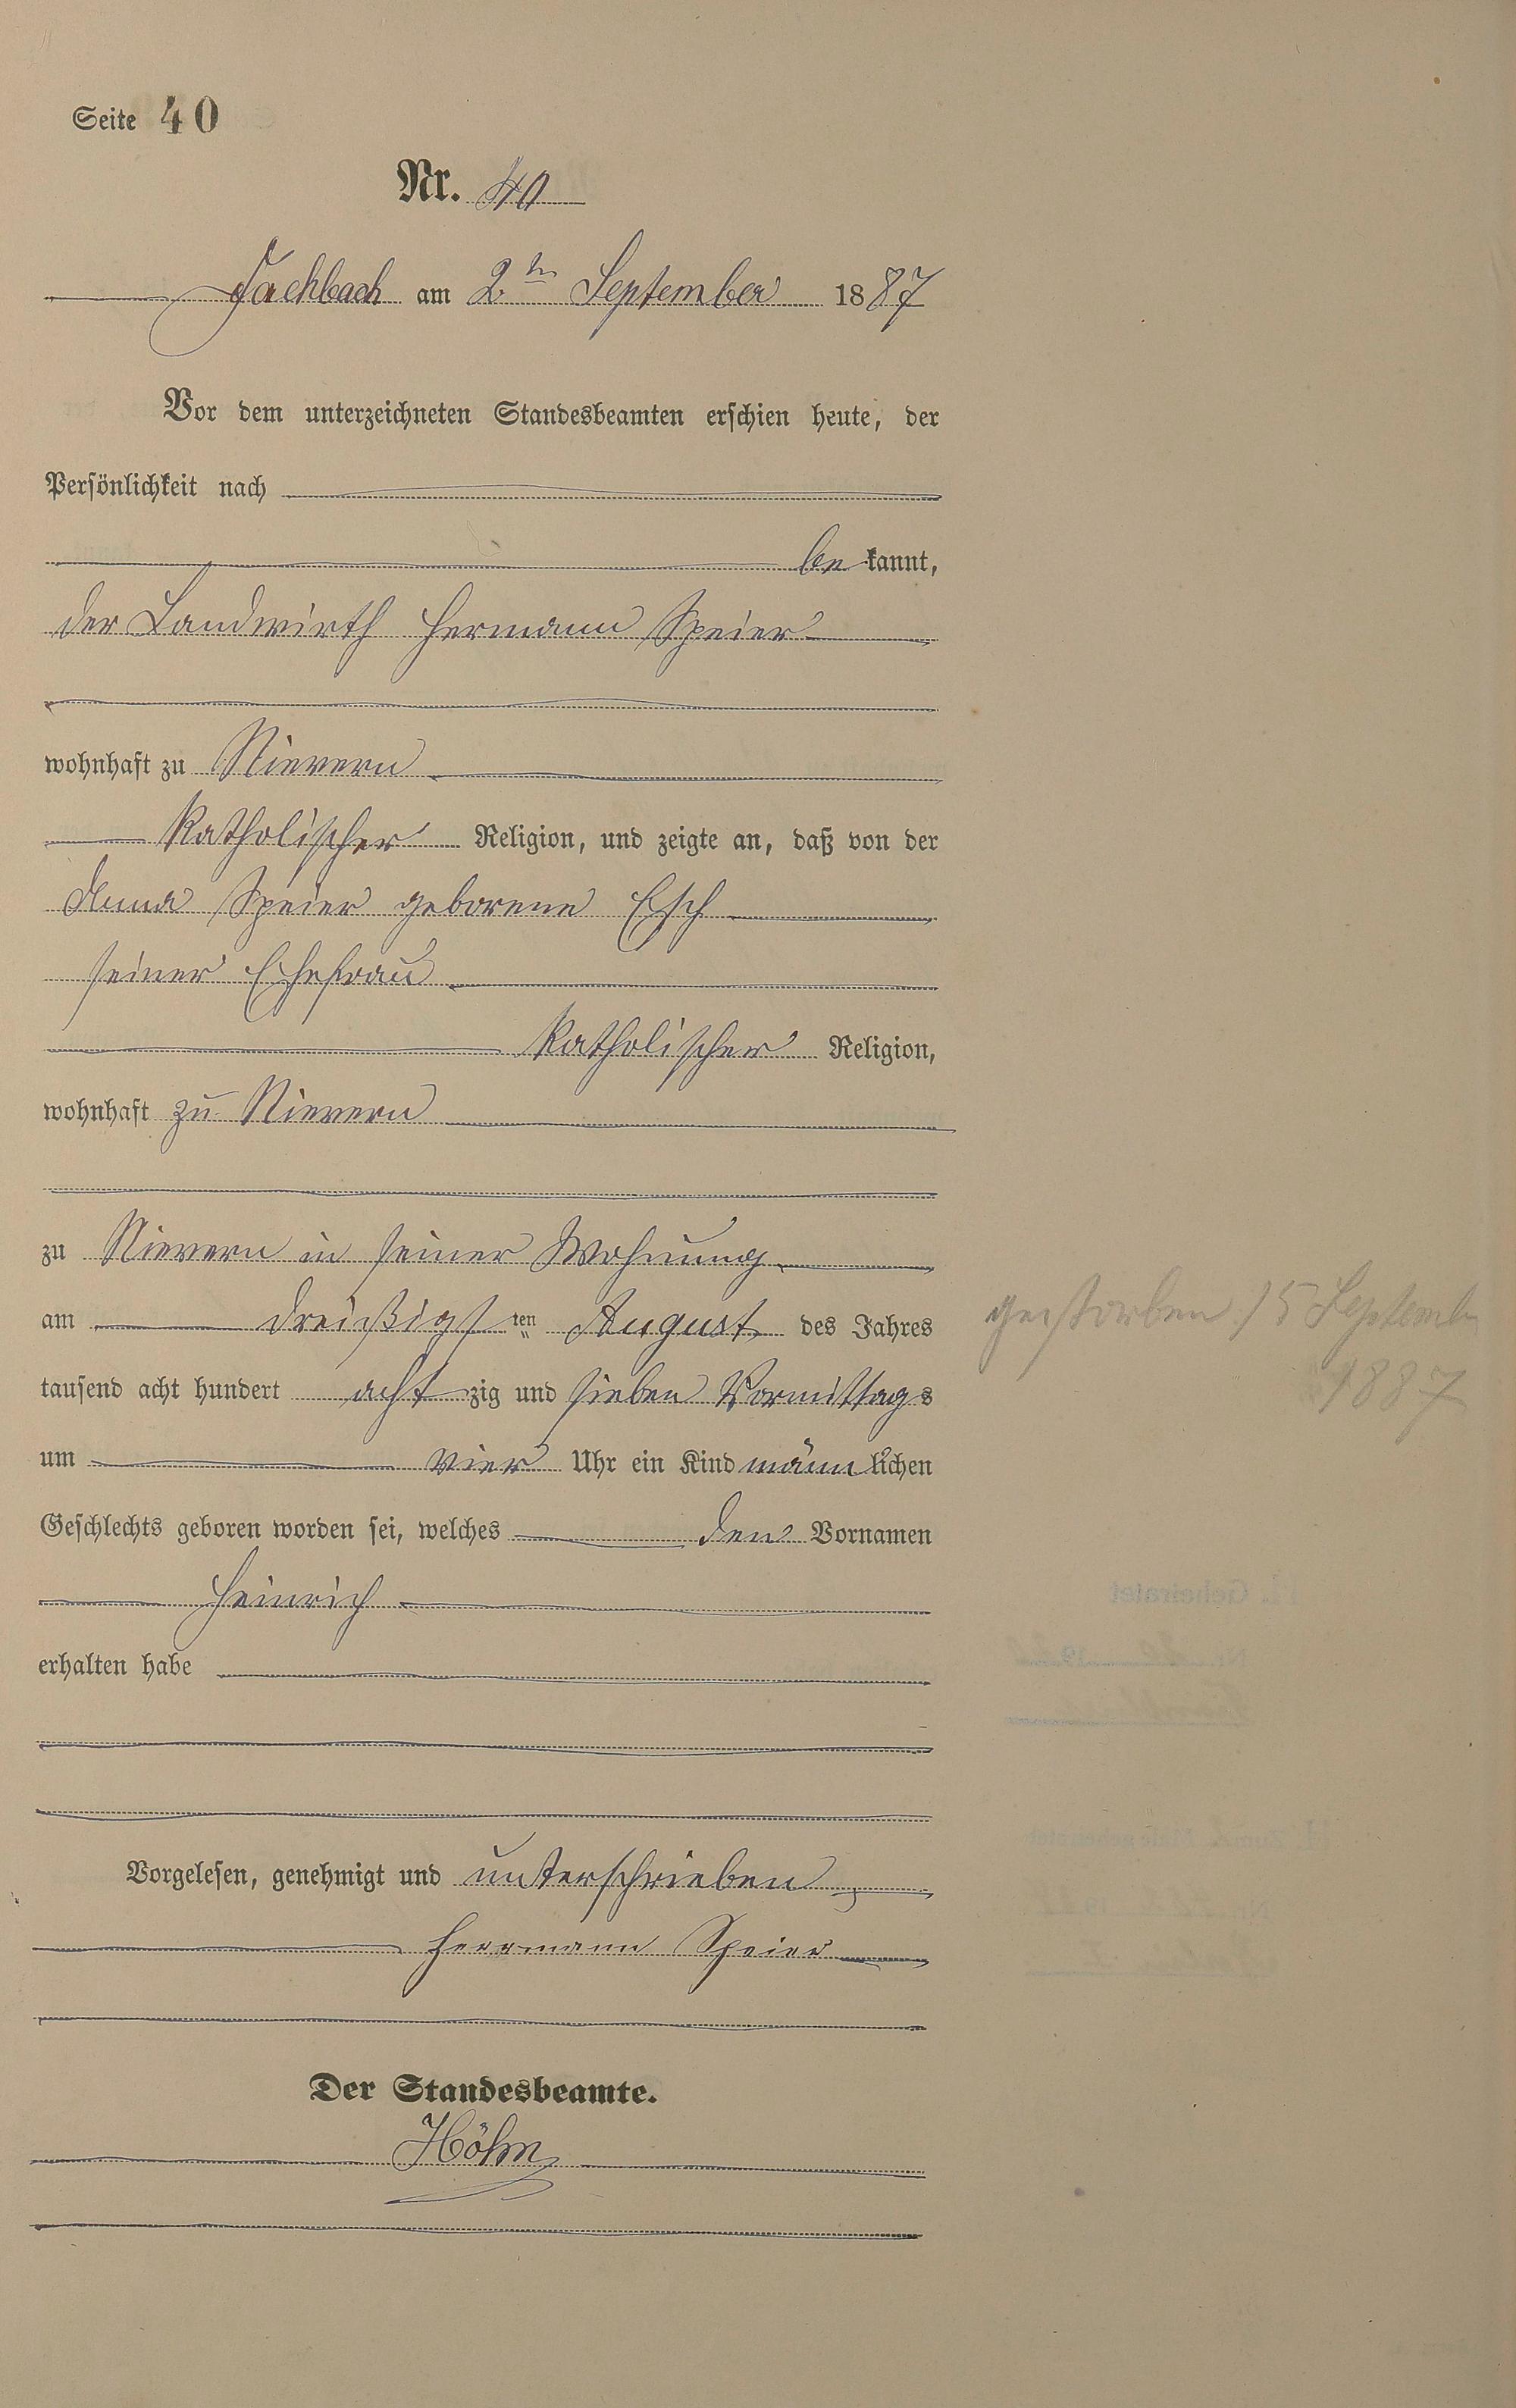 Seite 40
Nr. 40
Fachbach am 2ten September 1887
Vor dem unterzeichneten Standesbeamten erschien heute, der
Persönlichkeit nach
be kannt,
der Landwirth Hermann Speier
wohnhaft zu Nievern
Katholischer Religion, und zeigte an, daß von der
Anna Speier geborene Esch
seiner Ehefrau
Katholischer Religion,
wohnhaft zu Nievern
zu Nievern in seiner Wohnung
am dreißigsten August des Jahres
tausend acht hundert achtzig und sieben Vormittags
um vier Uhr ein Kind männlichen
Geschlechts geboren worden sei, welches den Vornamen
Heinrich
erhalten habe
gestorben 15 Septemb
1887
Vorgelesen, genehmigt und unterschrieben
Herrmann Speier
Der Standesbeamte.
Höhn